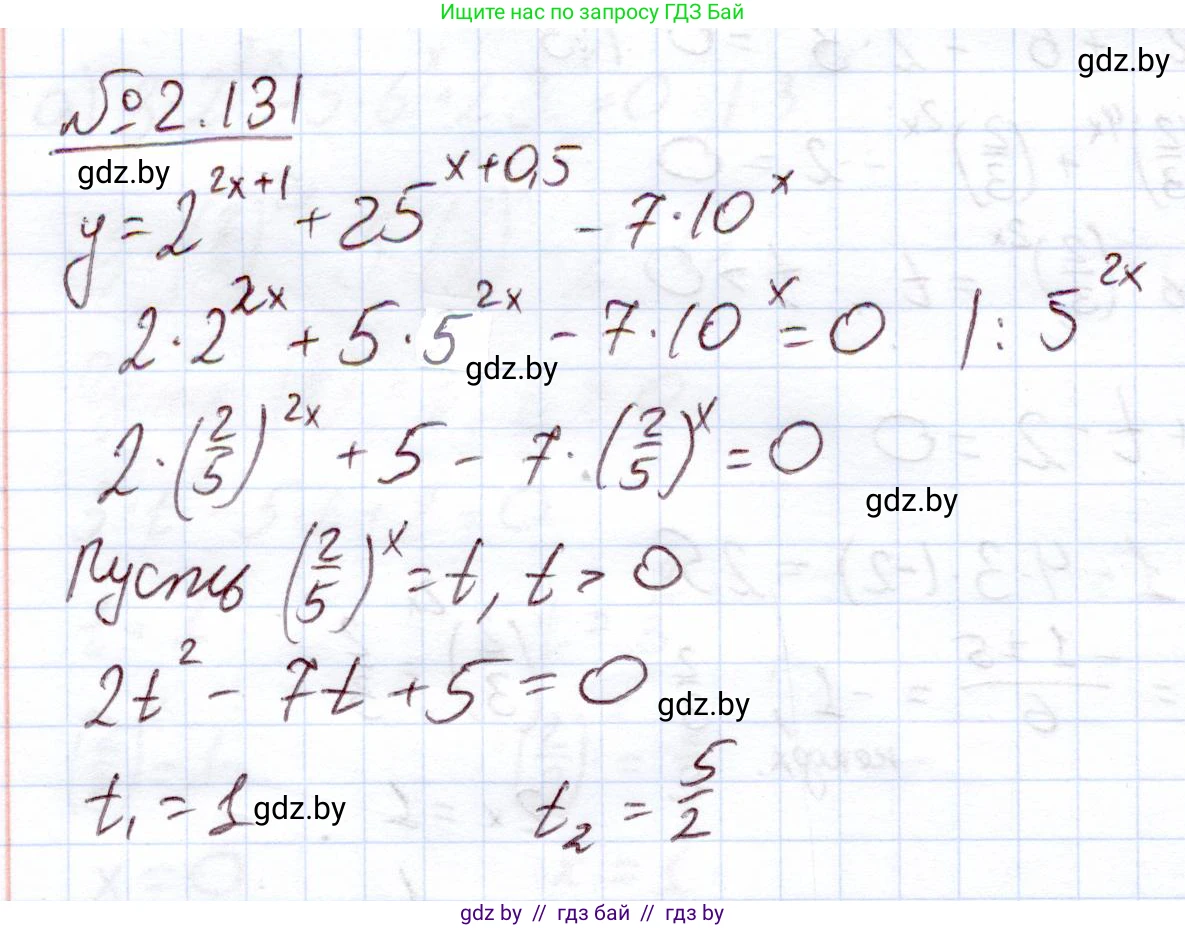 Ищите нас по запросу ГДЗ Бай
gdz.by
№ 2.131
gdz.by
y = 2^{2x+1} + 25^{x+0,5} - 7·10^x
2·2^{2x} + 5·5^{2x} - 7·10^x = 0 |: 5^{2x}
gdz.by
2·(2/5)^{2x} + 5 - 7·(2/5)^x = 0
gdz.by
Пусть (2/5)^x = t, t > 0
2t² - 7t + 5 = 0
gdz.by
t₁ = 1 gdz.by t₂ = 5/2
gdz by // гдз бай // gdz by